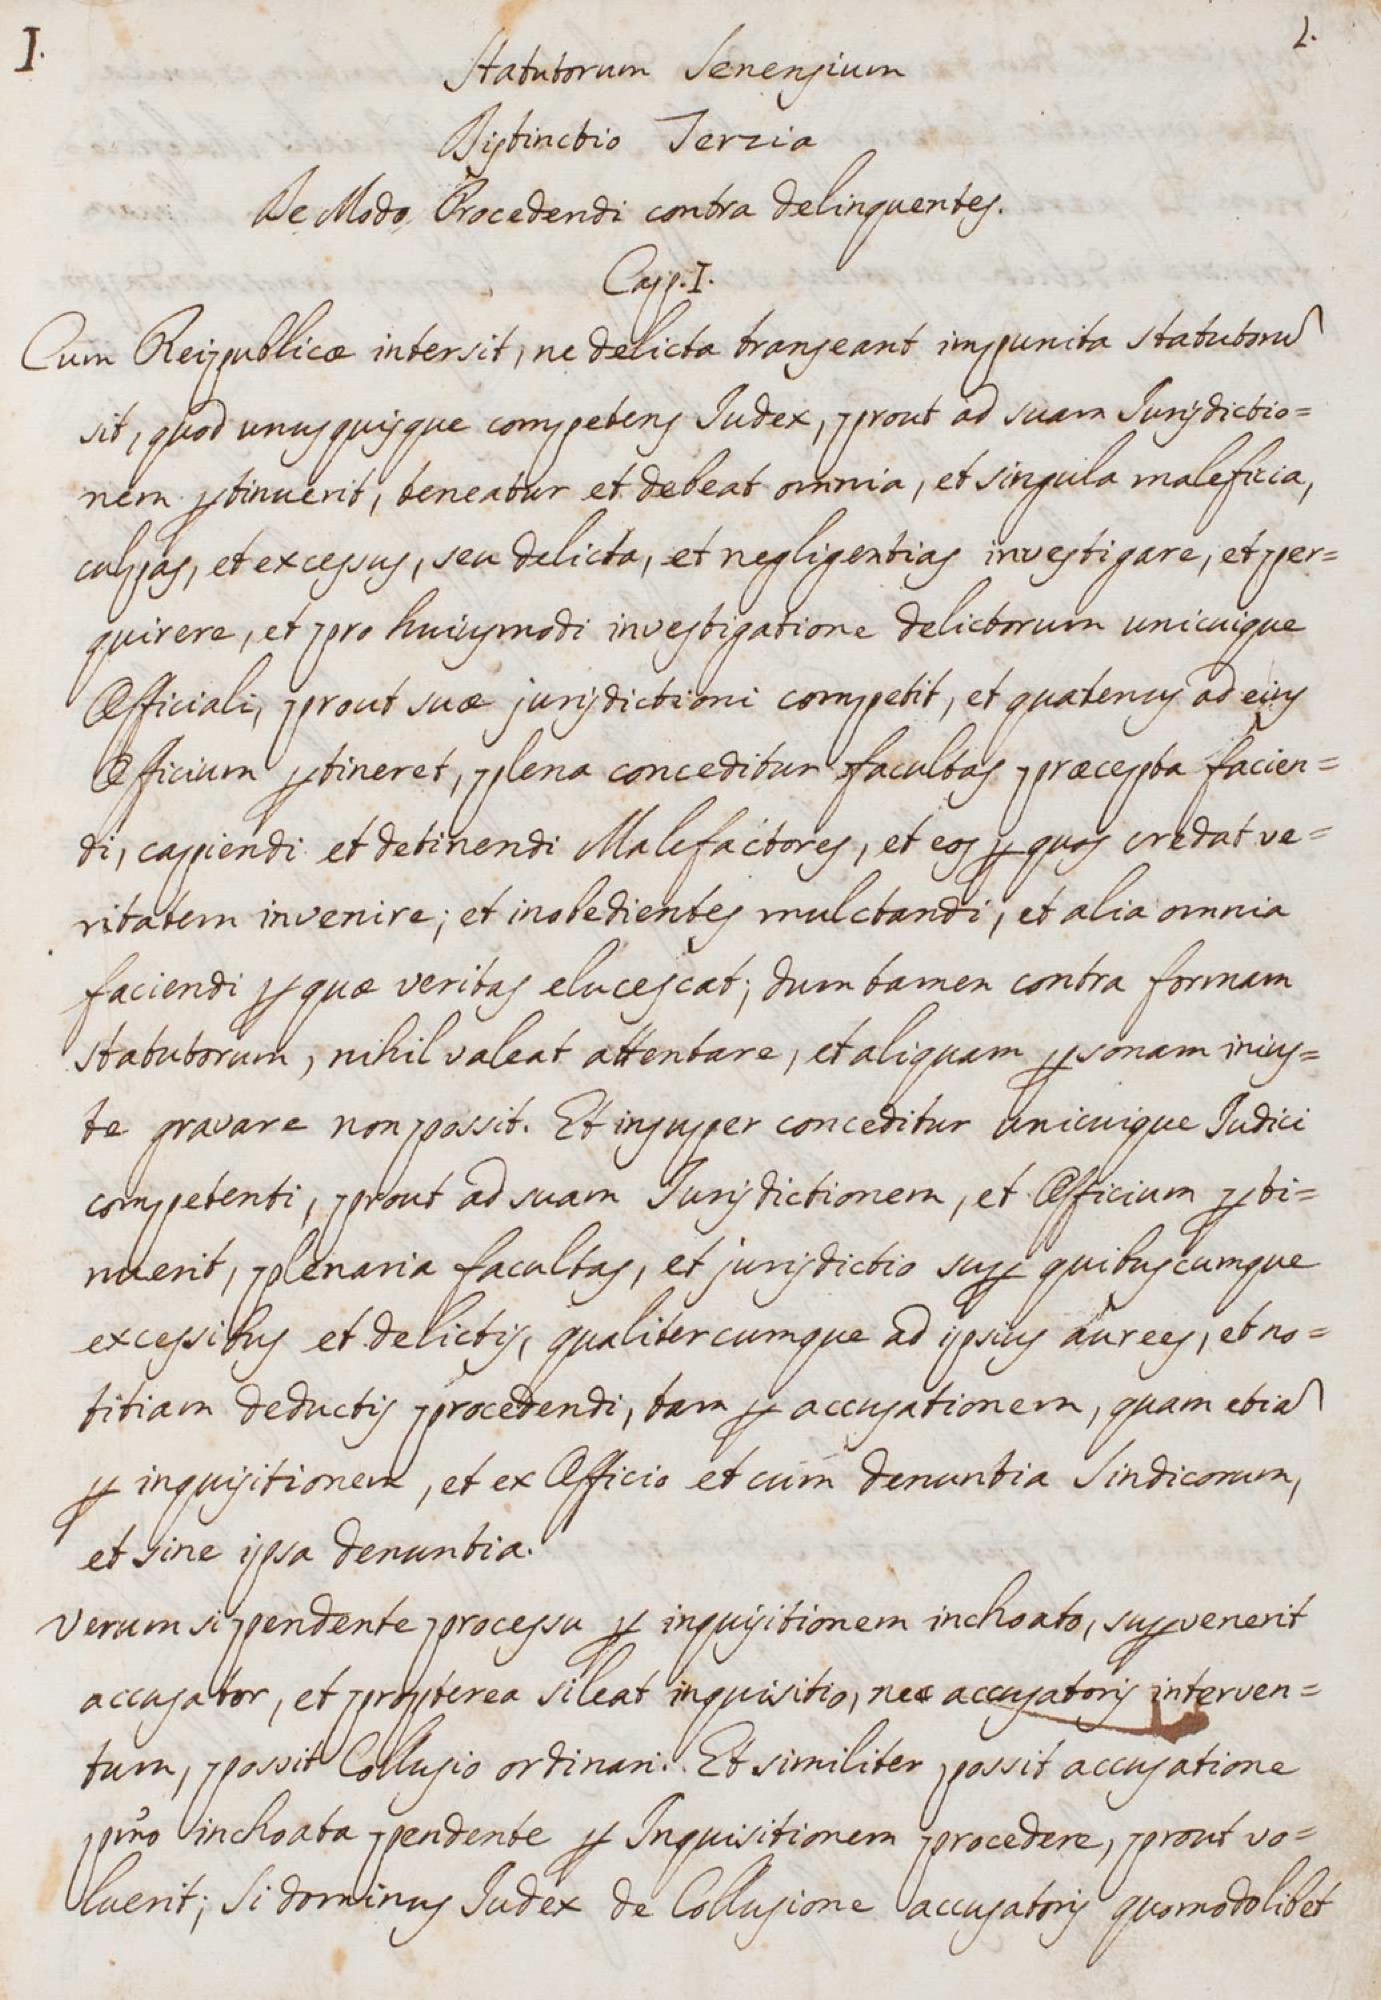 I.
1.
Statutorum Senensium
Distinctio Terzia
De Modo Procedendi contra delinquentes.
Capp. I.
Cum Reipublicæ intersit, ne delicta transeant impunita statutorũ
sit, quod unusquisque competens Judex, prout ad suam Jurisdictio=
nem ꝑtinuerit, teneatur et debeat omnia, et singula maleficia,
culpas, et excessus, seu delicta, et negligentias investigare, et per=
quirere, et pro huiusmodi investigatione delictorum unicuique
Officiali, prout suæ jurisdictioni competit, et quatenus ad eius
Officium ꝑtineret, plena conceditur facultas præcepta facien=
di, capiendi et detinendi Malefactores, et eos ꝑ quos credat ve=
ritatem invenire; et inobedientes mulctandi, et alia omnia
faciendi ꝑ quæ veritas elucescat; dum tamen contra formam
statutorum, nihil valeat attentare, et aliquam ꝑsonam inius=
te gravare non possit. Et insuper conceditur unicuique Judici
competenti, prout ad suam Jurisdictionem, et Officium ꝑti=
nuerit, plenaria facultas, et jurisdictio suꝑ quibuscumque
excessibus et delictis, qualitercumque ad ipsius aurees, et no=
titiam deductis procedendi, tam ꝑ accusationem, quam etiã
ꝑ inquisitionem, et ex Officio et cum denuntia Sindicorum,
et sine ipsa denuntia.
Verum si pendente processu ꝑ inquisitionem inchoato, suꝑvenerit
accusator, et propterea sileat inquisitio, nec accusatoris interven=
tum, possit Collusio ordinari. Et similiter possit accusatione
inchoata pendente ꝑ Inquisitionem procedere, prout vo=
luerit; Si dominus Judex de Collusione accusatoris quomodolibet